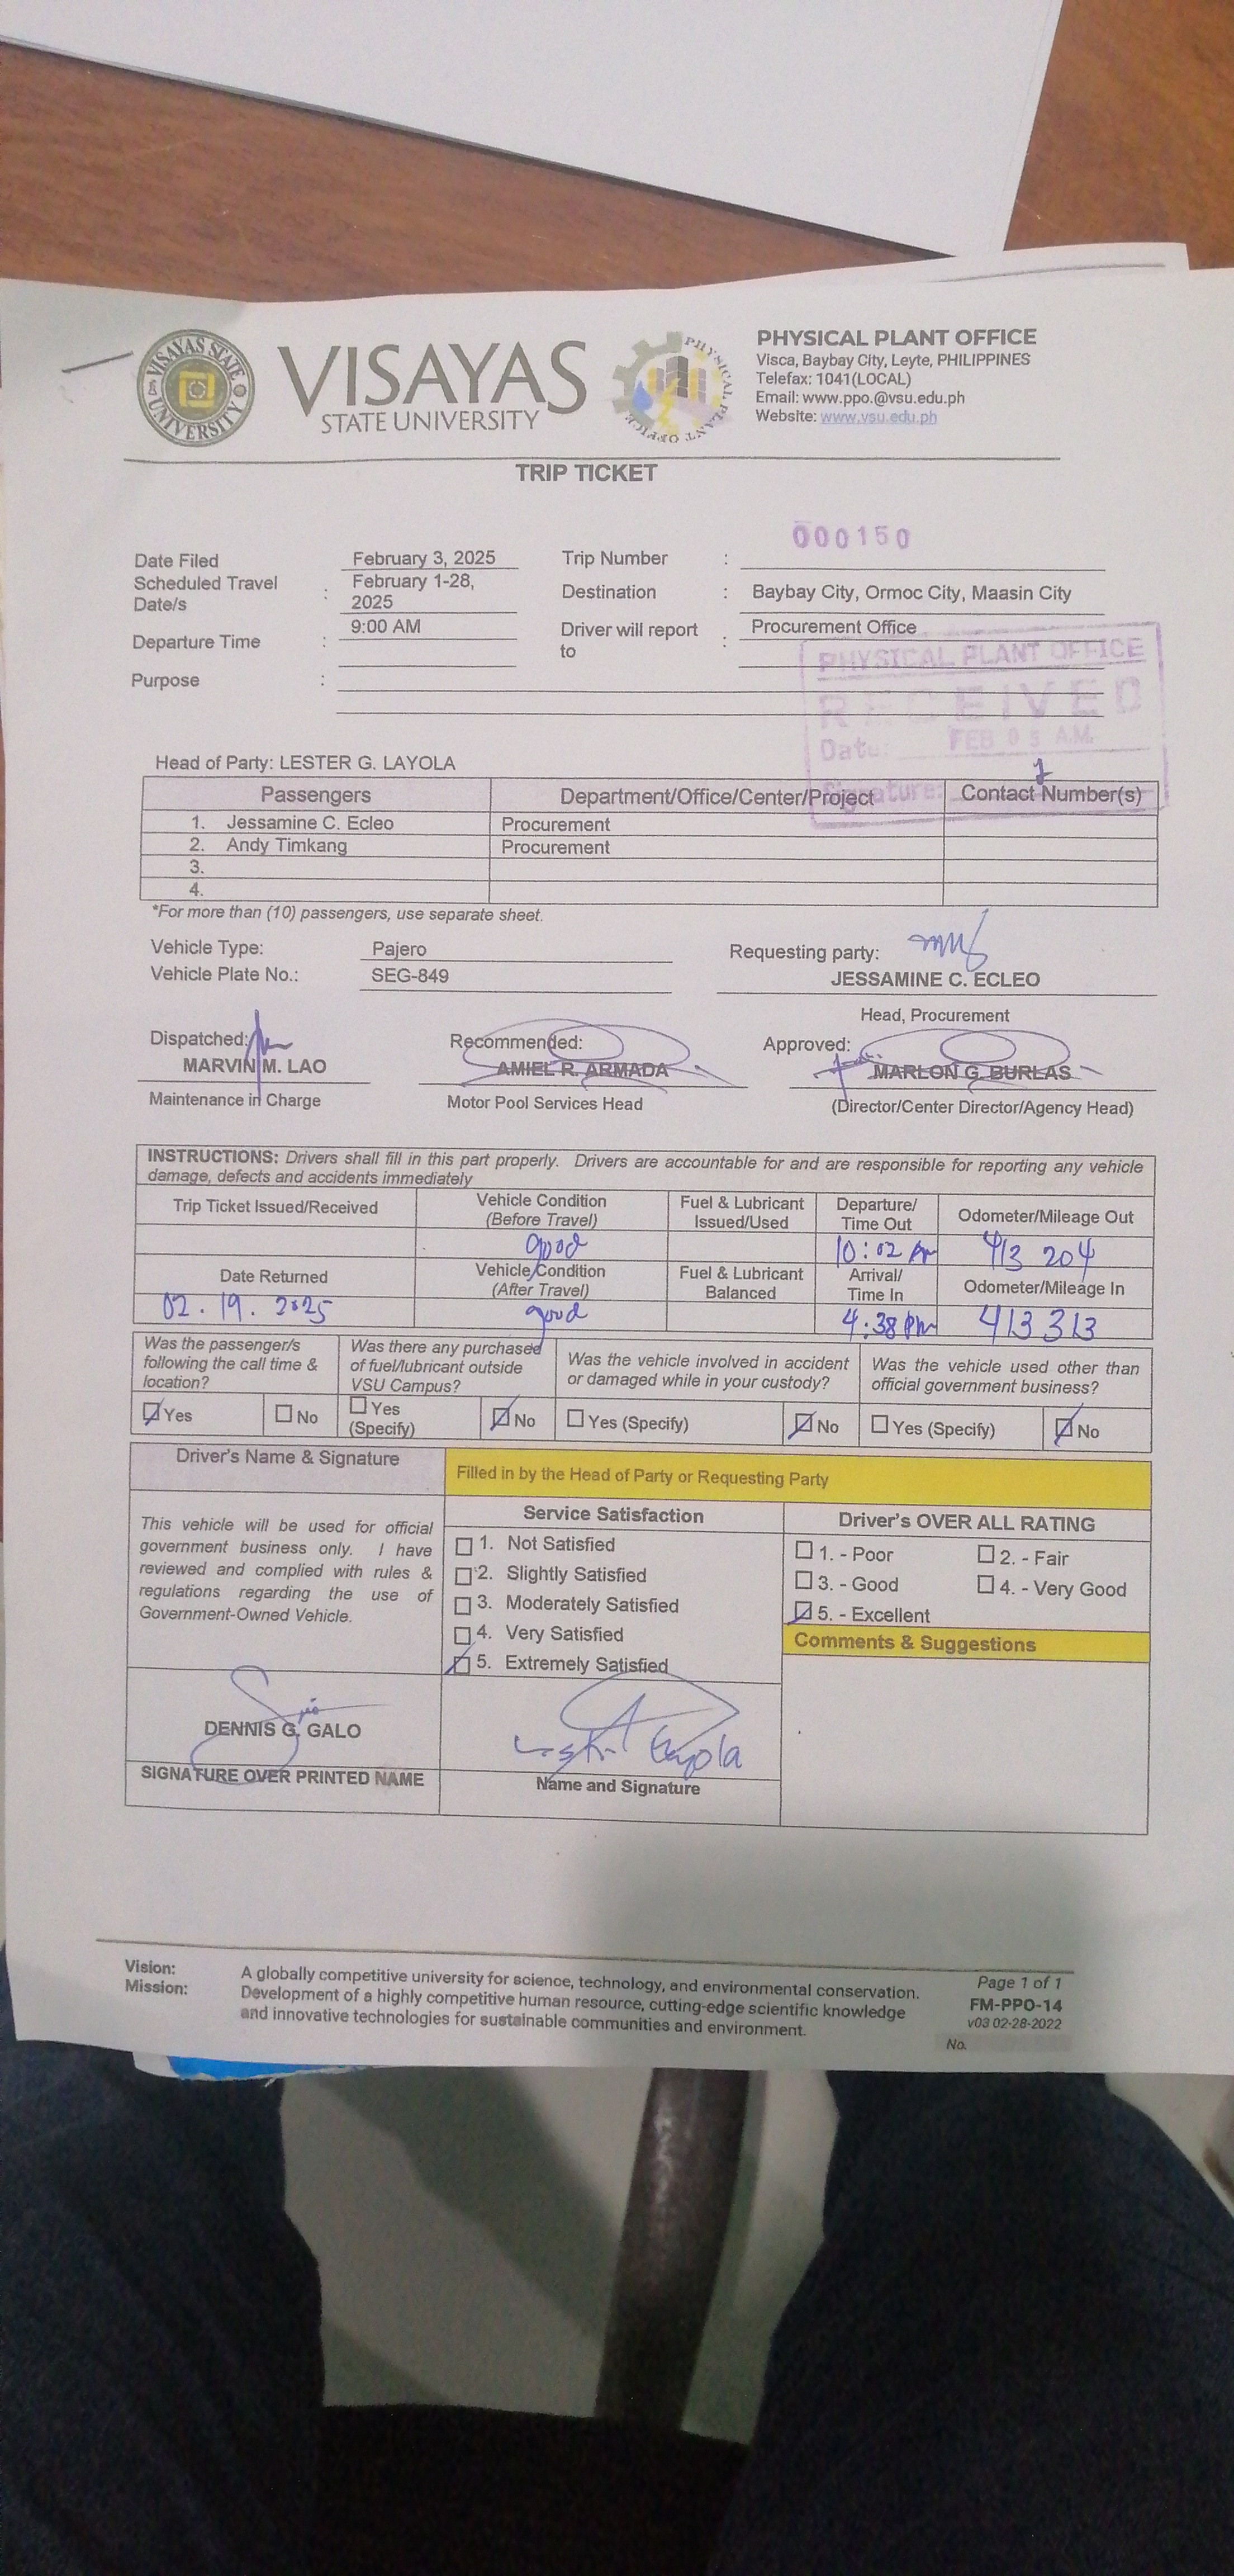 VISAYAS STATE UNIVERSITY
VISAYAS
STATE UNIVERSITY
PHYSICAL PLANT OFFICE
PHYSICAL PLANT OFFICE
Visca, Baybay City, Leyte, PHILIPPINES
Telefax: 1041(LOCAL)
Email: www.ppo.@vsu.edu.ph
Website: www.vsu.edu.ph
TRIP TICKET
000150
Date Filed February 3, 2025 Trip Number :
Scheduled Travel Date/s : February 1-28, 2025 Destination : Baybay City, Ormoc City, Maasin City
Departure Time : 9:00 AM Driver will report to : Procurement Office
Purpose :
PHYSICAL PLANT OFFICE
RECEIVED
Date: FEB 05 A.M.
Signature:
Head of Party: LESTER G. LAYOLA
Passengers Department/Office/Center/Project Contact Number(s)
1. Jessamine C. Ecleo Procurement
2. Andy Timkang Procurement
3.
4.
*For more than (10) passengers, use separate sheet.
Vehicle Type: Pajero Requesting party:
Vehicle Plate No.: SEG-849 JESSAMINE C. ECLEO
Head, Procurement
Dispatched: Recommended: Approved:
MARVIN M. LAO AMIEL R. ARMADA MARLON G. BURLAS
Maintenance in Charge Motor Pool Services Head (Director/Center Director/Agency Head)
INSTRUCTIONS: Drivers shall fill in this part properly. Drivers are accountable for and are responsible for reporting any vehicle
damage, defects and accidents immediately
Trip Ticket Issued/Received Vehicle Condition (Before Travel) Fuel & Lubricant Issued/Used Departure/ Time Out Odometer/Mileage Out
good 10:02 Am 413 204
Date Returned Vehicle Condition (After Travel) Fuel & Lubricant Balanced Arrival/ Time In Odometer/Mileage In
02. 19. 2025 good 4:38 Pm 413 313
Was the passenger/s following the call time & location? Was there any purchased of fuel/lubricant outside VSU Campus? Was the vehicle involved in accident or damaged while in your custody? Was the vehicle used other than official government business?
Yes No Yes (Specify) No Yes (Specify) No Yes (Specify) No
Driver's Name & Signature Filled in by the Head of Party or Requesting Party
This vehicle will be used for official
government business only. I have
reviewed and complied with rules &
regulations regarding the use of
Government-Owned Vehicle.
Service Satisfaction
1. Not Satisfied
2. Slightly Satisfied
3. Moderately Satisfied
4. Very Satisfied
5. Extremely Satisfied
Driver's OVER ALL RATING
1. - Poor 2. - Fair
3. - Good 4. - Very Good
5. - Excellent
Comments & Suggestions
DENNIS G. GALO
SIGNATURE OVER PRINTED NAME
Name and Signature
Vision: A globally competitive university for science, technology, and environmental conservation.
Mission: Development of a highly competitive human resource, cutting-edge scientific knowledge
and innovative technologies for sustainable communities and environment.
Page 1 of 1
FM-PPO-14
v03 02-28-2022
No.